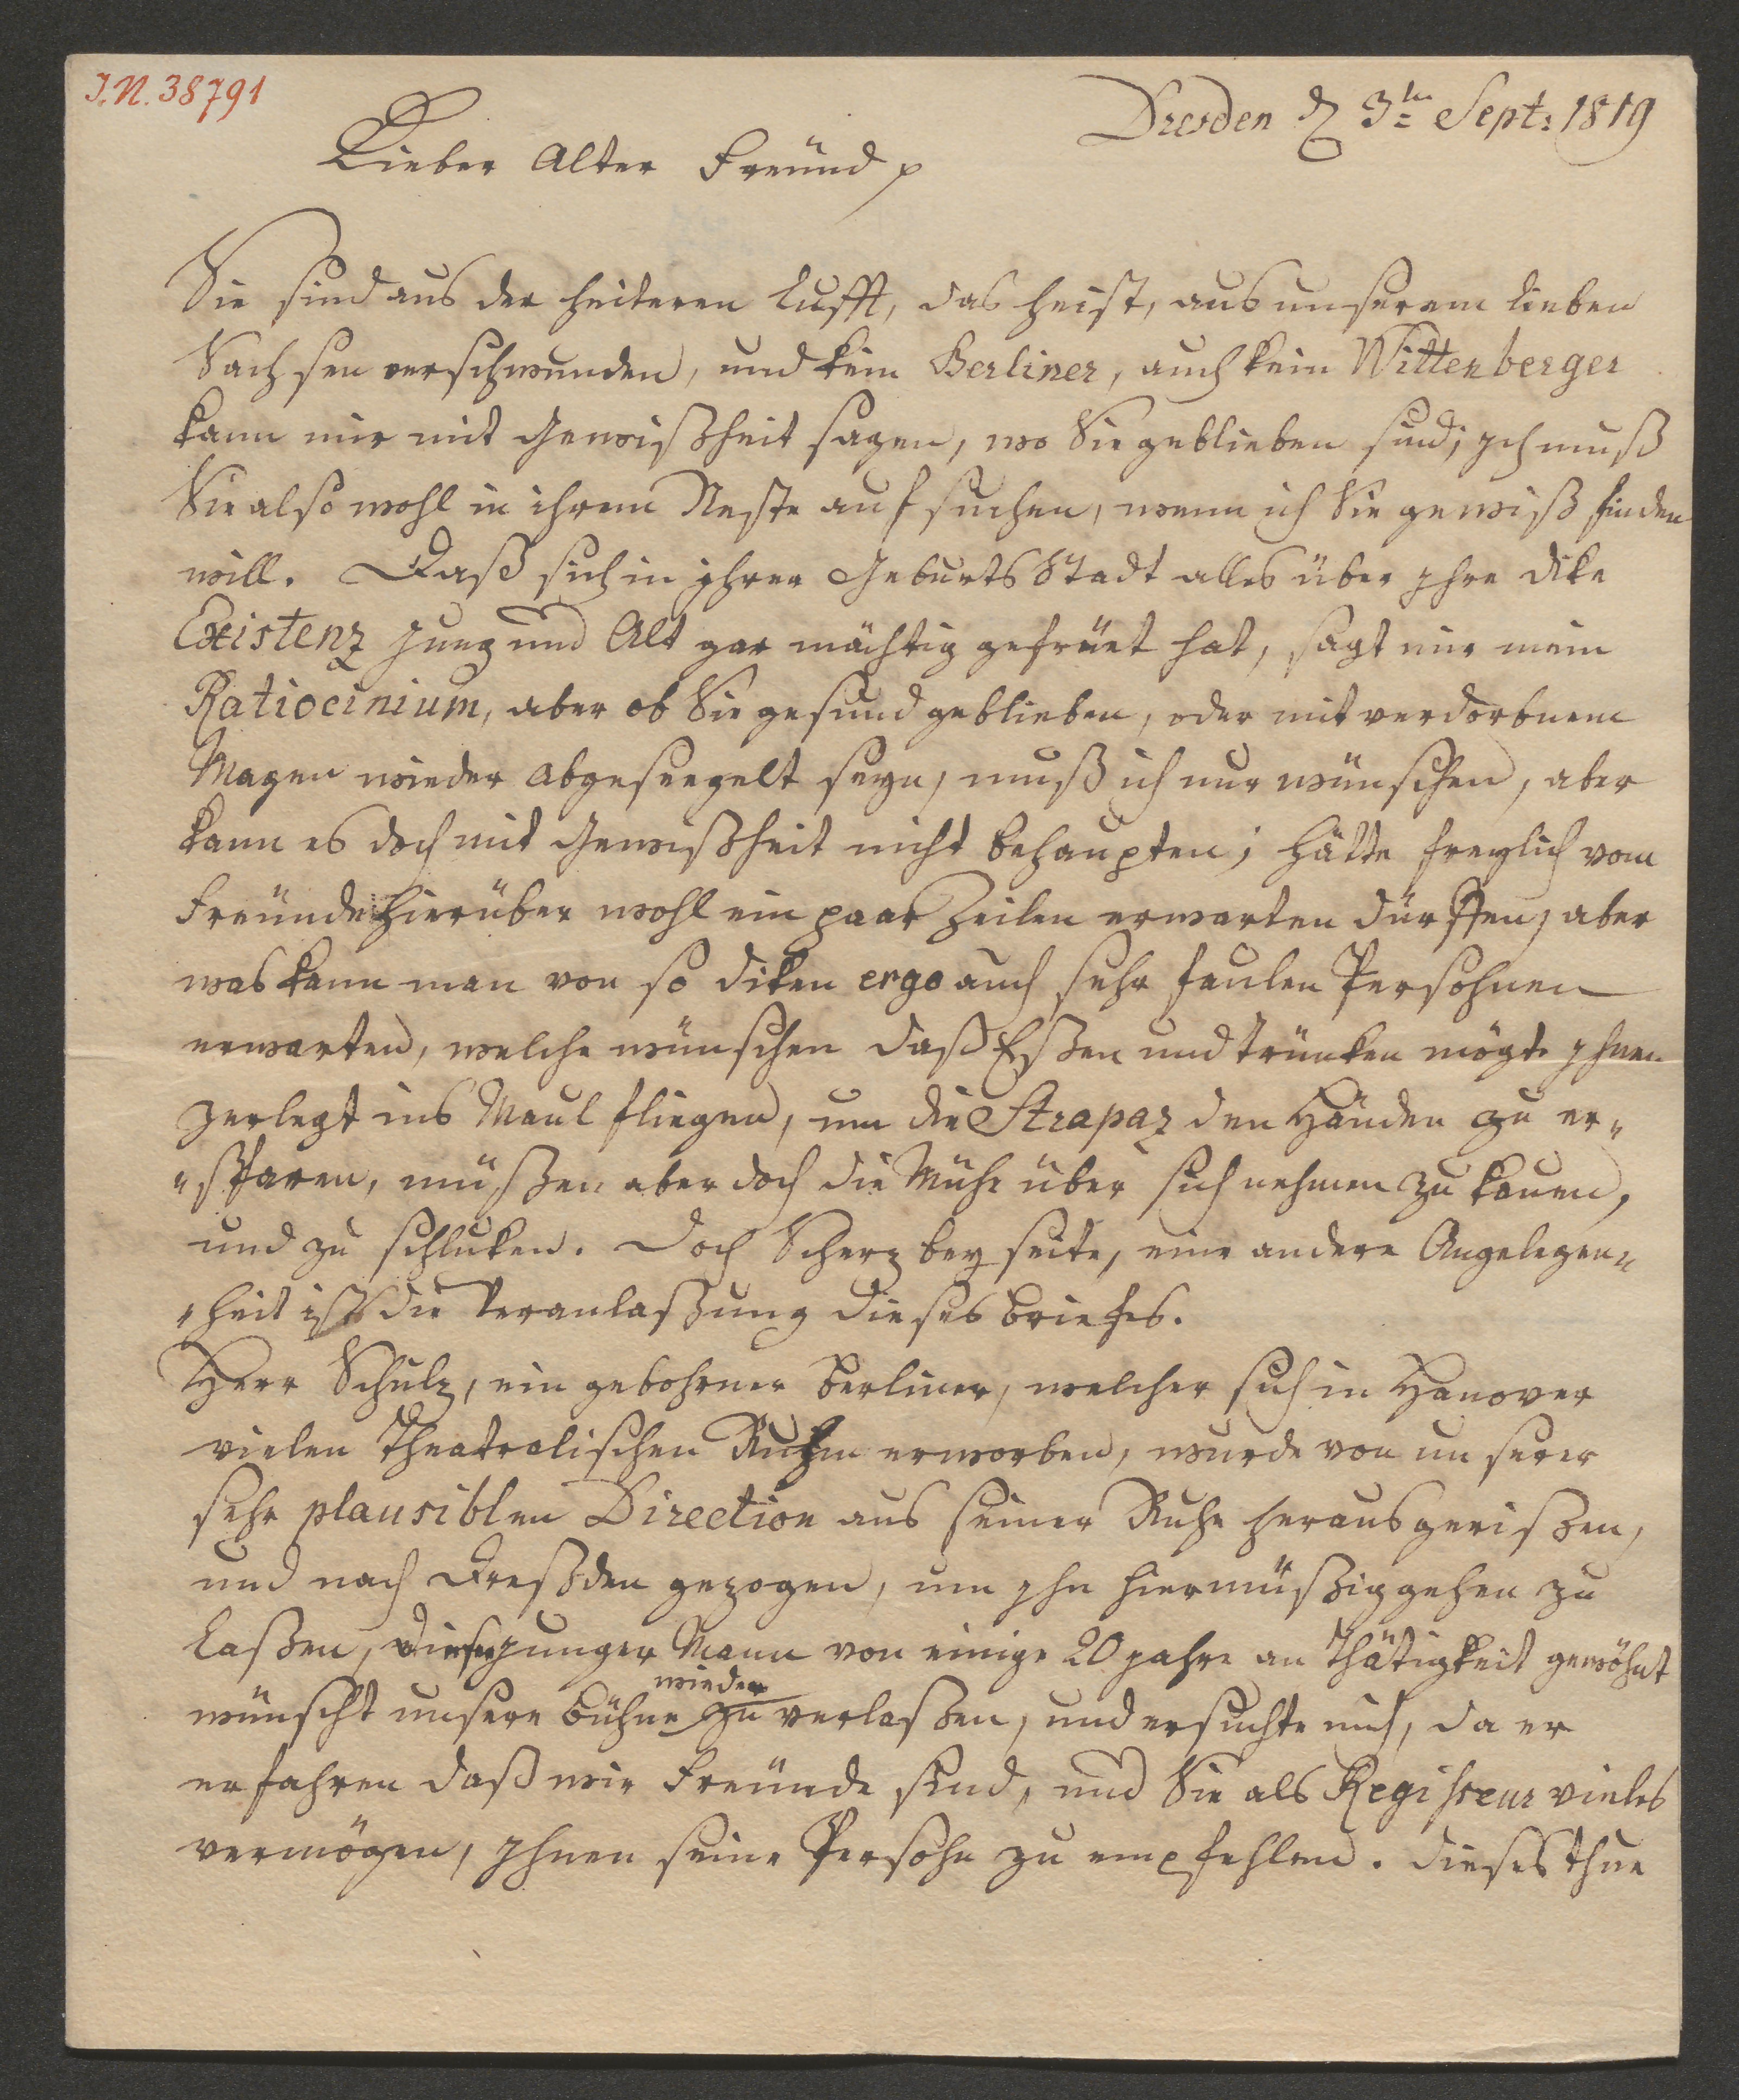 I.N. 38791
Dresden d 3ten Sept: 1819
Lieber Alter Freünd
Sie sind aus der heiteren Lufft, das heist, aus unserem lieben
Sachsen verschwunden, und kein Berliner, auch kein Wittenberger
kann mir mit Gewißheit sagen, wo Sie geblieben sind; jch muß
Sie also wohl in ihrem Neste aufsuchen, wenn ich Sie gewiß finden
will. Daß sich in jhrer Geburts Stadt alles über jhre dike
Existenz Jung und Alt gar mächtig gefreüet hat, sagt mir mein
Ratiocinium, aber ob Sie gesund geblieben, oder mit verdorbnem
Magen wieder abgeseegelt seyn, muß ich nur wünschen, aber
kann es doch mit Gewißheit nicht behaupten; hätte freylich vom
Freünde hierüber wohl ein paar Zeilen erwarten dürffen, aber
was kann man von so diken ergo auch sehr faulen Persohnen
erwarten, welche wünschen daß Eßen und Trünken mögte jhnen
zerlegt ins Maul fliegen, um die Strapaz den Händen zu er„
„sparen, müßen aber doch die Mühe über sich nehmen zu kauen,
und zu schluken. Doch Scherz bey seite, eine andere Angelegen„
„heit ist die Veranlaßung dieses Briefes.
Herr Schulz, ein gebohrner Berliner, welcher sich in Hanover
vielen Theatralischen Ruhm erworben, wurde von unserer
sehr plausiblen Direction aus seiner Ruhe herausgerißen,
und nach Dreßden gezogen, um jhn hier müßiggehen zu
laßen, dieser junger Mann von einige 20 jahre an Thätigkeit gewöhnt
wieder
wünscht unsere Bühne zu verlaßen, und ersuchte mich, da er
erfahren daß wir Freünde sind, und Sie als Regisseur vieles
vermögen, jhnen seine Persohn zu empfehlen. dieses thue